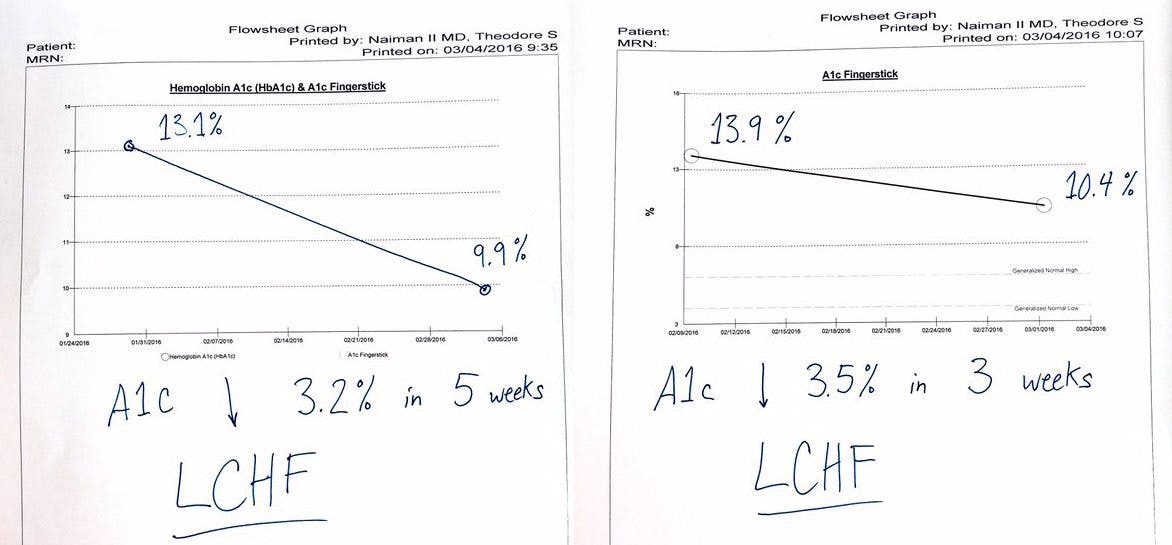 Flowsheet Graph
Patient:
Printed by: Naiman II MD, Theodore S
MRN:
Printed on: 03/04/2016 9:35
Hemoglobin A1c (HbA1c) & A1c Fingerstick
14
13.1%
13
12
11
9.9%
10
9
01/24/2016 01/31/2016 02/07/2016 02/14/2016 02/21/2016 02/28/2016 03/06/2016
Hemoglobin A1c (HbA1c) A1c Fingerstick
A1C ↓ 3.2% in 5 weeks
LCHF
Flowsheet Graph
Patient:
Printed by: Naiman II MD, Theodore S
MRN:
Printed on: 03/04/2016 10:07
A1c Fingerstick
18
13.9%
13
10.4%
%
8
Generalized Normal High
Generalized Normal Low
3
02/09/2016 02/12/2016 02/15/2016 02/18/2016 02/21/2016 02/24/2016 02/27/2016 03/01/2016 03/04/2016
A1c ↓ 3.5% in 3 weeks
LCHF